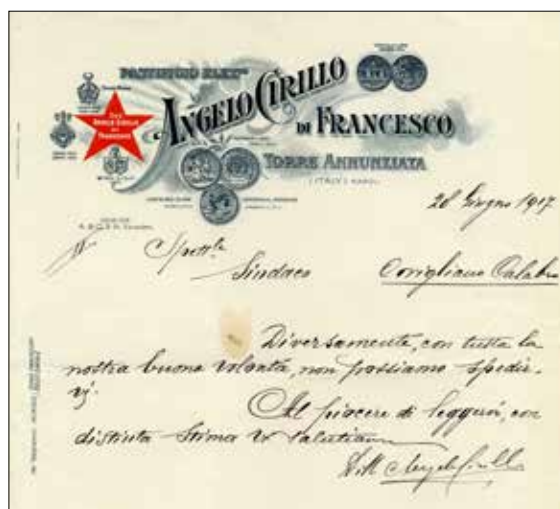 PASTIFICIO ELETT.co
ANGELO CIRILLO
DI FRANCESCO
TORRE ANNUNZIATA
(ITALY) NAPOLI
28 Giugno 1917
Spett.le
Sindaco
Corigliano Calabro
Diversamente, con tutta la
nostra buona volontà, non possiamo spedir-
vi.
Al piacere di leggervi, con
distinta stima vi salutiamo
Ditt Angelo Cirillo